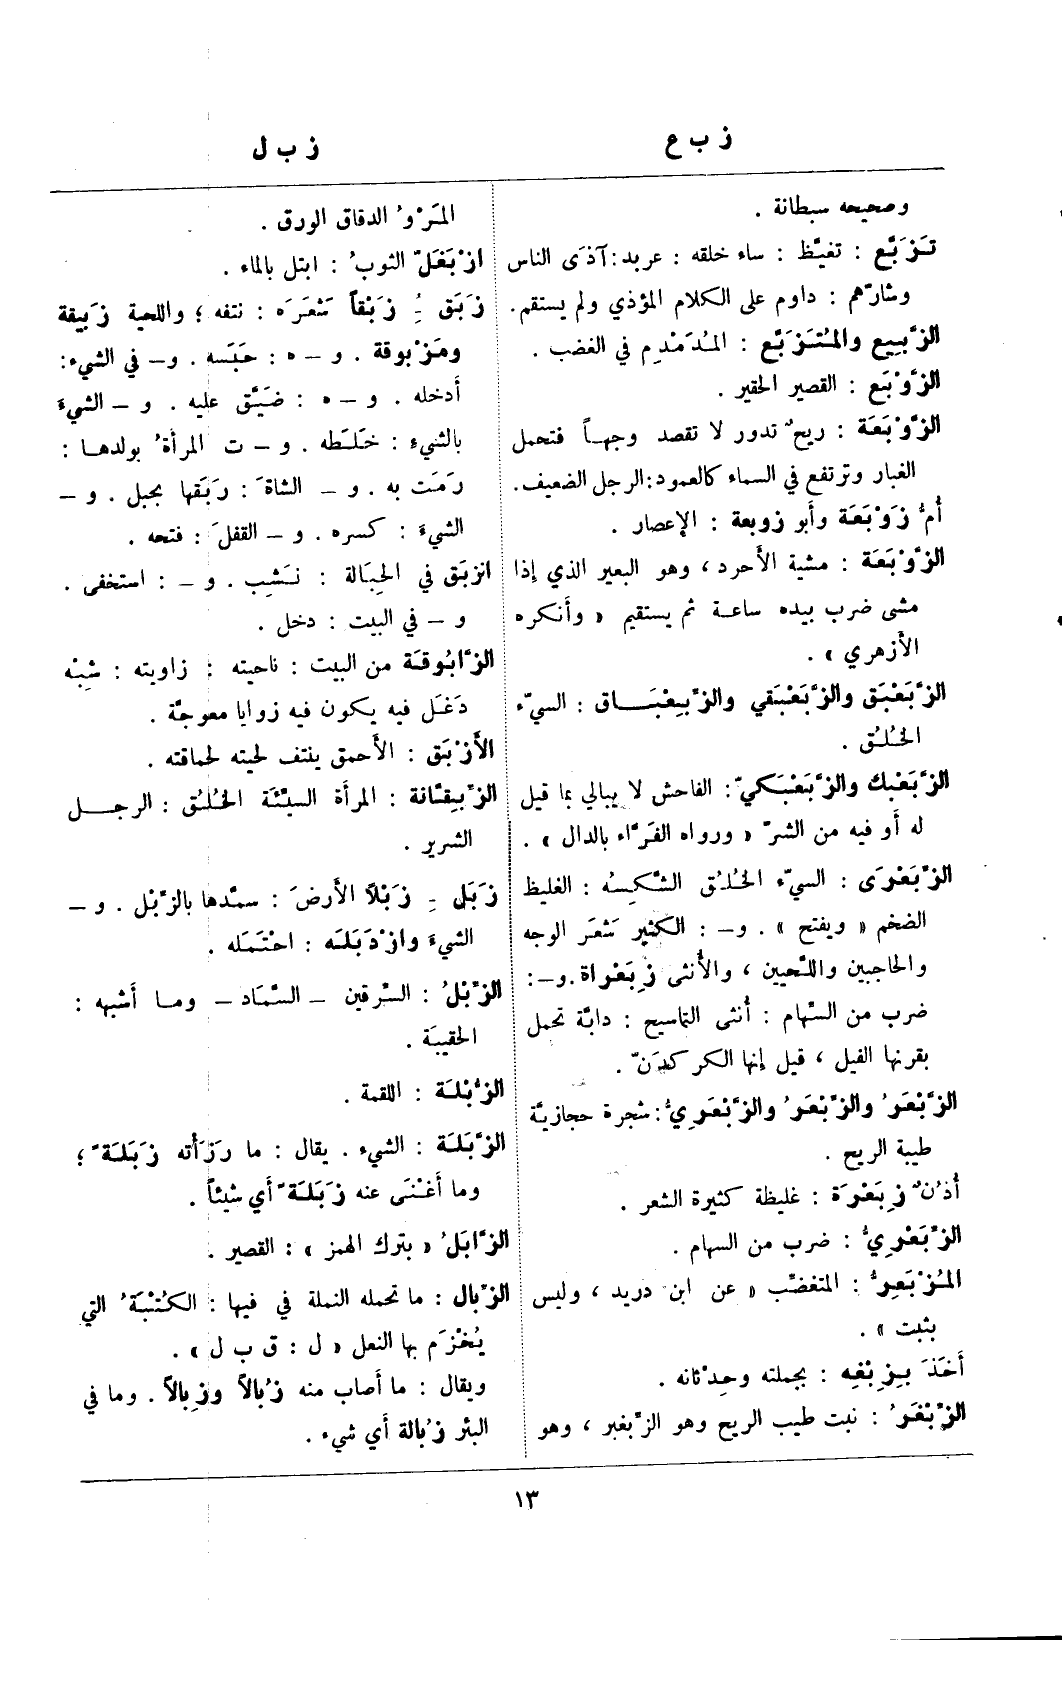 ز ب ع
ز ب ل
وصحيحه سبطانة .
تَزَبَّع : تغيَّظ : ساء خلقه : عربد : آذَى الناس
وشارَّهم : داوم على الكلام المؤذي ولم يستقم .
الزَّبِيع والمُتَزَبِّع : المُدَمْدِم في الغضب .
الزَّوْبَع : القصير الحقير .
الزَّوْبَعَة : ريحٌ تدور لا تقصد وجهاً فتحمل
الغبار وترتفع في السماء كالعمود : الرجل الضعيف .
أمُّ زَوْبَعَة وأبو زوبعة : الإعصار .
الزَّوْبَعَة : مشية الأحرد ، وهو البعير الذي إذا
مشى ضرب بيده ساعة ثم يستقيم « وأنكره
الأزهري » .
الزَّبَعْبَق والزَّبَعْبَقي والزِّبِعْبَاق : السيّء
الخُلُق .
الزَّبَعْبَك والزَّبَعْبَكيّ : الفاحش لا يبالي بما قيل
له أو فيه من الشرّ « ورواه الفَرَّاء بالدال » .
الزِّبَعْرَى : السيّء الخُلُق الشَّكِسُه : الغليظ
الضخم « ويفتح » . و– : الكثير شَعَر الوجه
والحاجبين واللَّحيين ، والأنثى زِبَعْراة . و– :
ضرب من السِّهام : أنثى التماسيح : دابَّة تحمل
بقرنها الفيل ، قيل إنها الكركدَنّ .
الزَّبْعَرُ والزِّبْعَرُ والزَّبْعَرِيُّ : شجرة حجازيَّة
طيبة الريح .
أُذُنٌ زِبَعْرَة : غليظة كثيرة الشعر .
الزِّبَعْرِيُّ : ضرب من السهام .
المُزْبَعِرُّ : المتغضّب « عن ابن دريد ، وليس
بثبت » .
أَخَذَ بِزِبْغِه : بجملته وحِدْثانه .
الزِّبْغَرُ : نبت طيب الريح وهو الزَّبغبر ، وهو
المَرْوُ الدقاق الورق .
ازْبَغَلّ الثوبُ : ابتل بالماء .
زَبَق ـُِ زَبْقاً شَعَرَه : نتفه ؛ واللحية زَبِيقة
ومَزْبوقة . و – ه : حَبَسه . و– في الشيء :
أدخله . و – ه : ضَيَّق عليه . و – الشيءَ
بالشيء : خَلَطه . و – ت المرأةُ بولدها :
رَمَت به . و – الشاةَ : رَبَقها بحبل . و –
الشيءَ : كسره . و – القفلَ : فتحه .
انزبَق في الحِبَالة : نَشِب . و – : استخفى .
و – في البيت : دخل .
الزَّابُوقَة من البيت : ناحيته : زاويته : شِبْه
دَغَل فيه يكون فيه زوايا معوجَّة .
الأَزْبَق : الأحمق ينتف لحيته لحماقته .
الزِّبِقَّانة : المرأة السيِّئَة الخُلُق : الرجل
الشرير .
زَبَل ـِ زَبْلاً الأرضَ : سمّدها بالزِّبْل . و –
الشيءَ وازْدَبَلَه : احْتَمَله .
الزِّبْلُ : السِّرقين – السَّمَاد – وما أشبهه :
الحقيبَة .
الزُّبْلَة : اللقمة .
الزَّبَلَة : الشيء . يقال : ما رَزَأْته زَبَلَةً ؛
وما أغْنَى عنه زَبَلَةً أي شيئاً .
الزَّابَلُ « بترك الهمز » : القصير .
الزِّبال : ما تحمله النملة في فيها : الكُتْبَةُ التي
يُخْزَم بها النعل « ل : ق ب ل » .
ويقال : ما أصاب منه زُبالاً وزِبالاً . وما في
البئر زُبالة أي شيء .
١٣